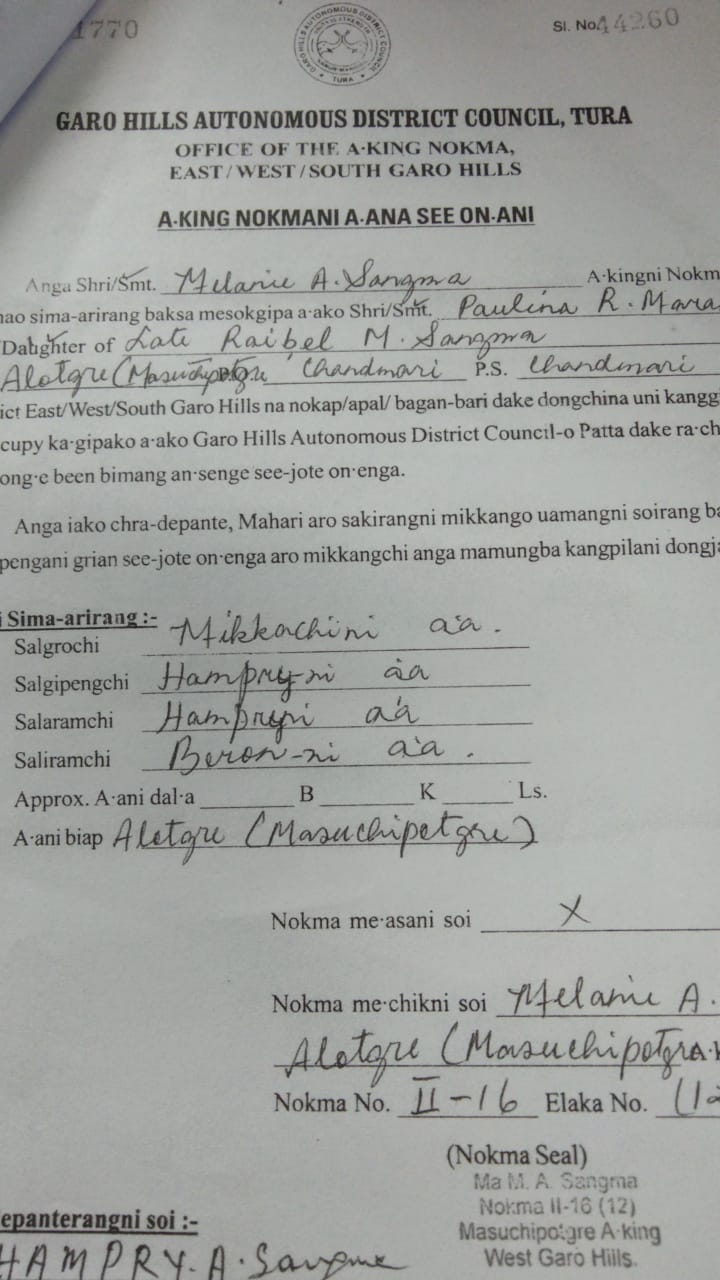 1770
Sl. No 44260
GARO HILLS AUTONOMOUS DISTRICT COUNCIL
TURA
GARO HILLS AUTONOMOUS DISTRICT COUNCIL, TURA
OFFICE OF THE A·KING NOKMA,
EAST/WEST/SOUTH GARO HILLS
A·KING NOKMANI A·ANA SEE ON·ANI
Anga Shri/Smt. Melanie A. Sangma A·kingni Nokm
nao sima-arirang baksa mesokgipa a·ako Shri/Smt. Paulina R. Marak
/Daughter of Late Raibel M. Sangma
Alotgre (Masuchipotgre Chandmari P.S. Chandmari
ict East/West/South Garo Hills na nokap/apal/ bagan-bari dake dongchina uni kangg
cupy ka·gipako a·ako Garo Hills Autonomous District Council-o Patta dake ra·ch
ong·e been bimang an·senge see-jote on·enga.
Anga iako chra-depante, Mahari aro sakirangni mikkango uamangni soirang ba
pengani grian see-jote on·enga aro mikkangchi anga mamungba kangpilani dongja
i Sima-arirang :-
Salgrochi Mikkachini a·a.
Salgipengchi Hampry-ni a·a
Salaramchi Hampryni a·a
Saliramchi Beron-ni a·a.
Approx. A·ani dal·a B K Ls.
A·ani biap Alotgre (Masuchipotgre)
Nokma me·asani soi X
Nokma me·chikni soi Melanie A.
Alotgre (Masuchipotgre A·k
Nokma No. II-16 Elaka No. (12
(Nokma Seal)
Ma M. A. Sangma
Nokma II-16 (12)
Masuchipotgre A·king
West Garo Hills.
epanterangni soi :-
HAMPRY. A. Sangma